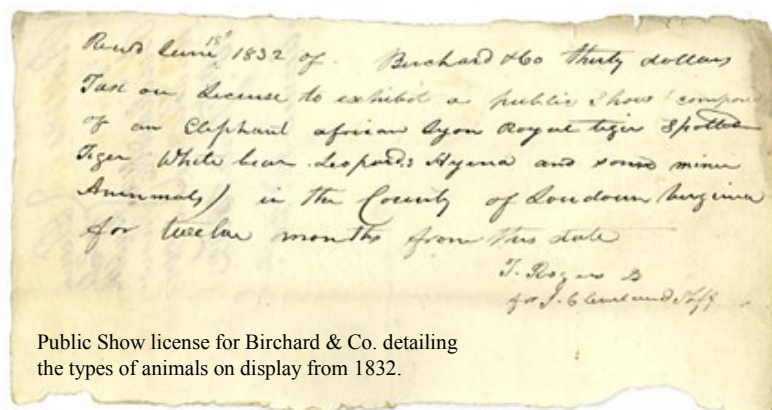 Recvd June 18th 1832 of Birchard & Co thirty dollars
Tax on License to exhibit a public Show (compos
of an Elephant african Lyon Royal tiger Spotted
Tiger White bear Leopard: Hyena and some minor
Annimals) in the County of Loudoun Virginia
for twelve months from this date
T. Rogers
for J. Cleveland Shff
Public Show license for Birchard & Co. detailing
the types of animals on display from 1832.